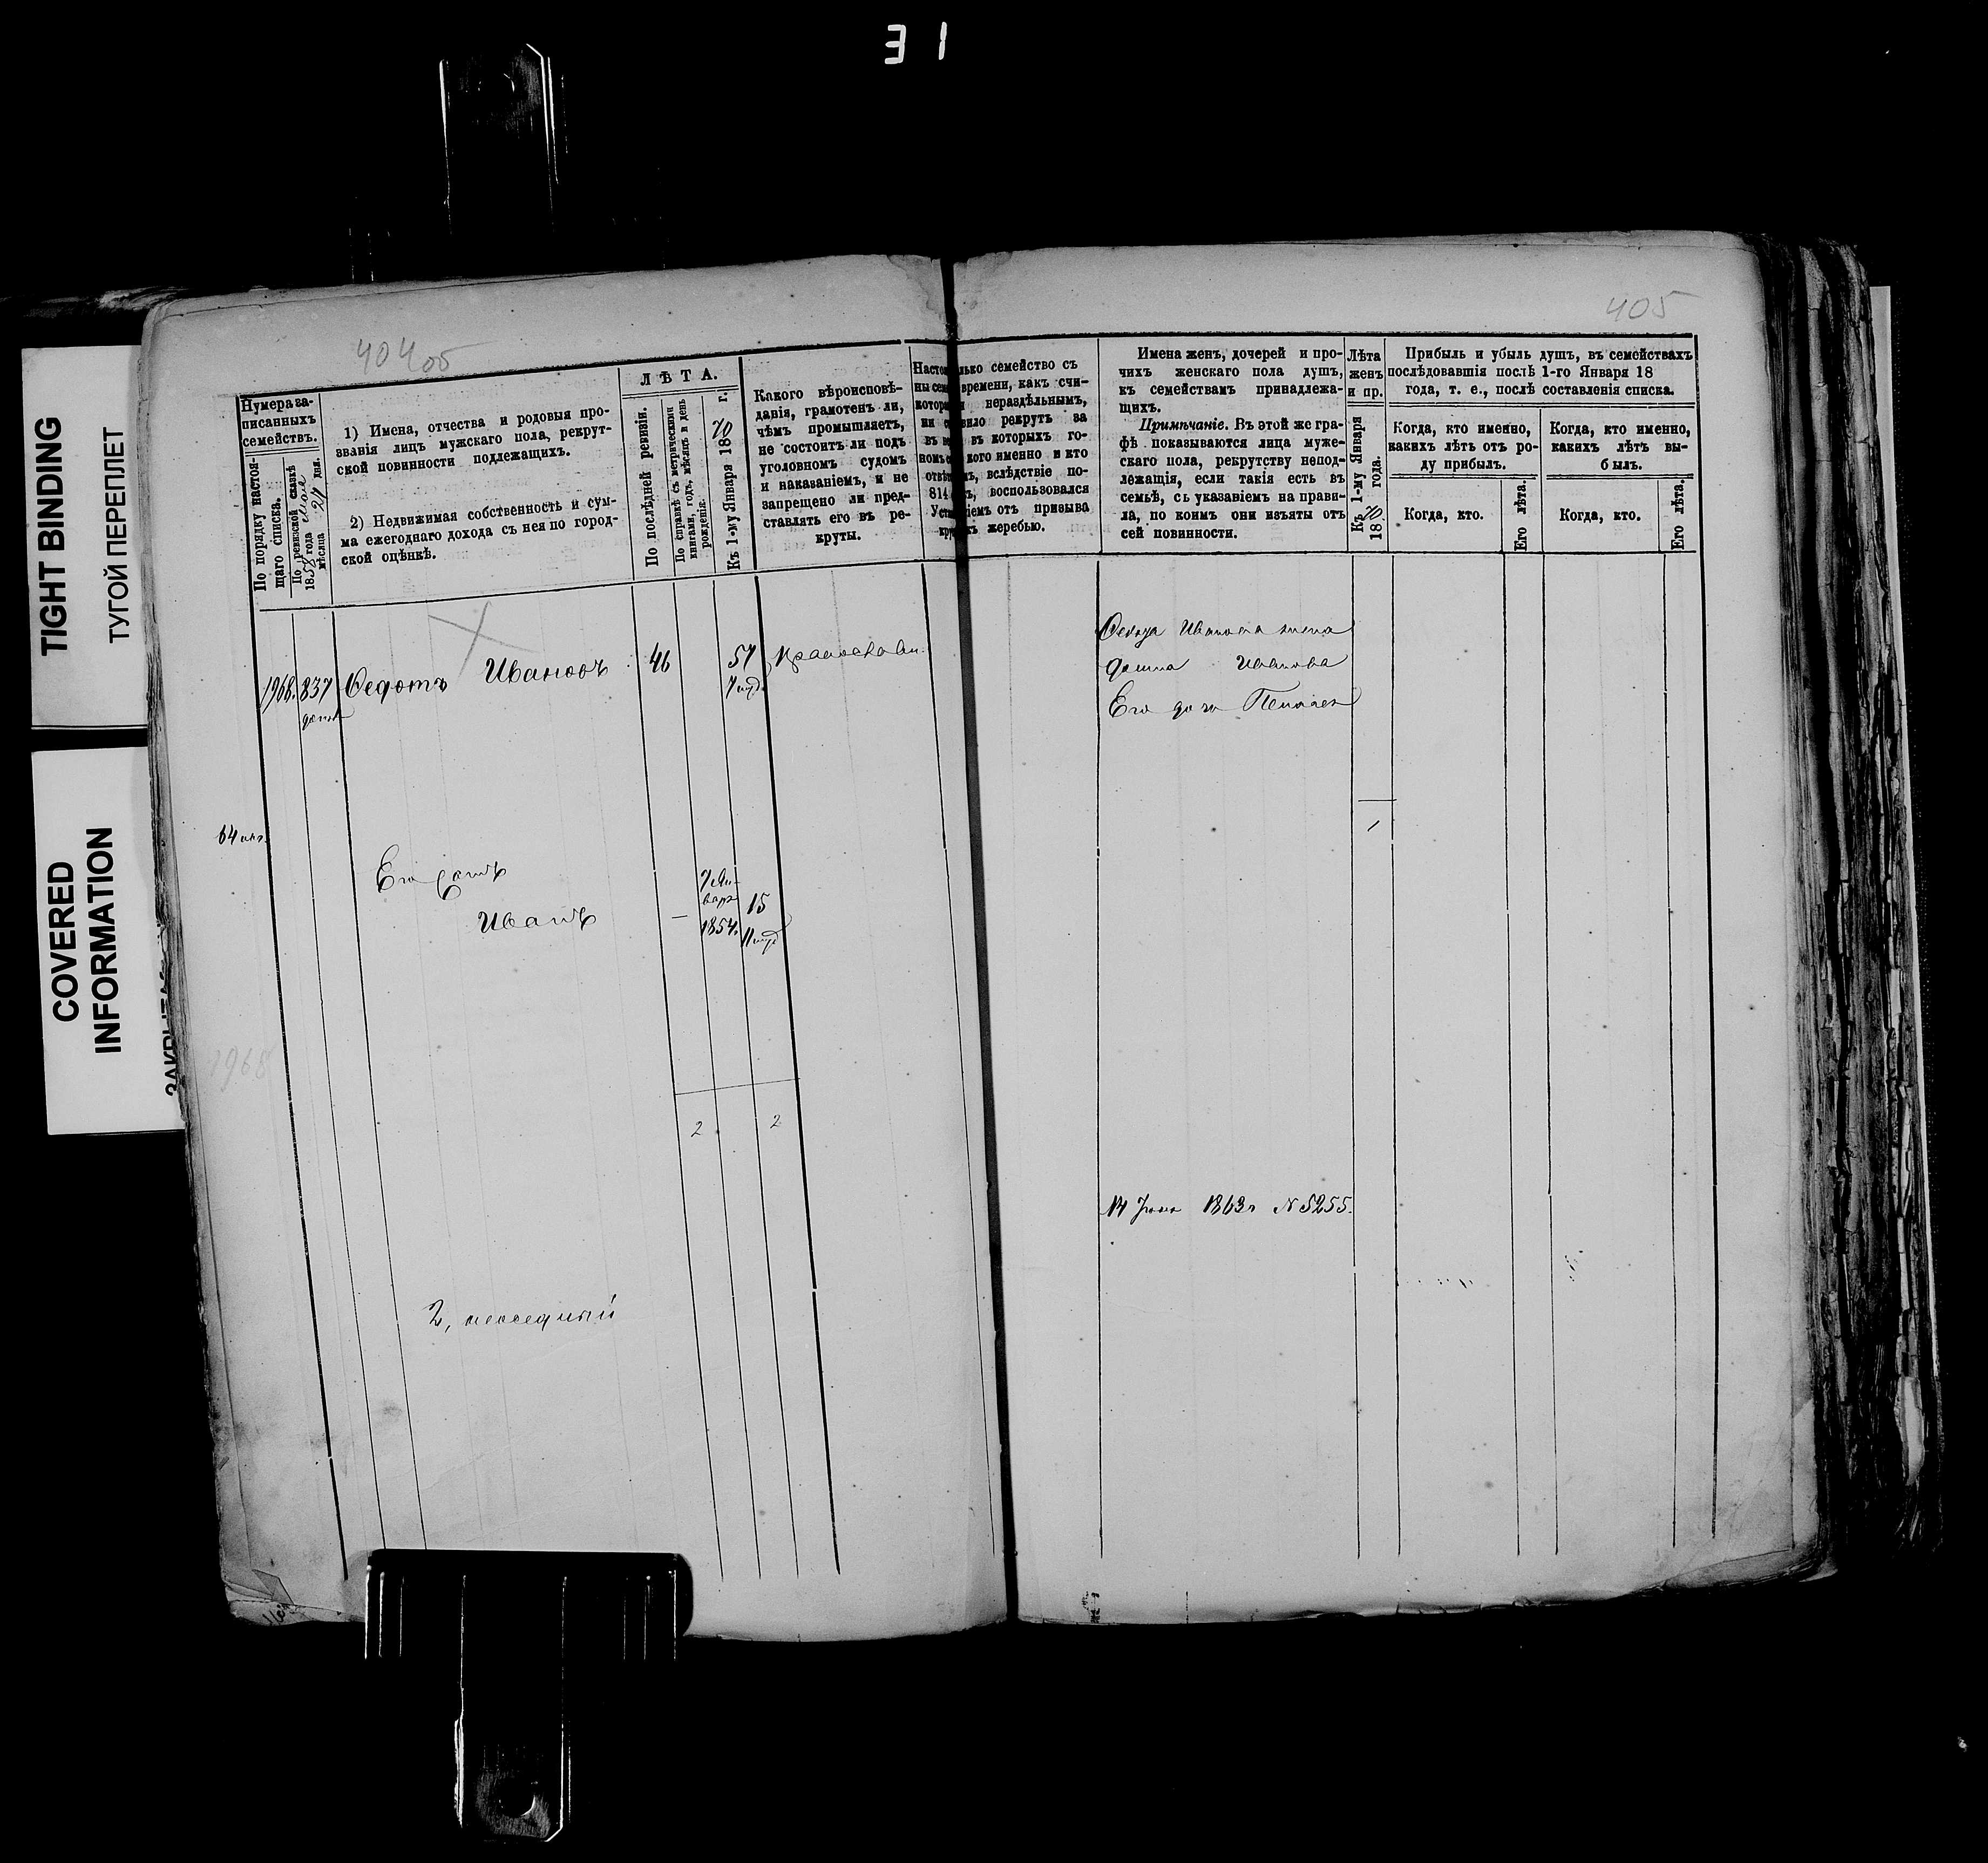 31
TIGHT BINDING
ТУГОЙ ПЕРЕПЛЕТ
COVERED
INFORMATION
404 05
405
Нумера за-
писанныхъ
семействъ.
По порядку настоя-
щаго списка.
По ревизской сказкѣ
1858 года Мая
мѣсяца 24 дня.
1) Имена, отчества и родовыя про-
званія лицъ мужскаго пола, рекрут-
ской повинности подлежащихъ.
2) Недвижимая собственность и сум-
ма ежегоднаго дохода съ нея по город-
ской оцѣнкѣ.
ЛѢТА.
По послѣдней ревизіи.
По справкѣ съ метрическими
книгами, годъ, мѣсяцъ и день
рожденія.
Къ 1-му Января 1870 г.
Какого вѣроисповѣ-
данія, грамотенъ ли,
чѣмъ промышляетъ,
не состоитъ ли подъ
уголовномъ судомъ
и наказаніемъ, и не
запрещено ли пред-
ставлять его въ ре-
круты.
лько семейство съ
времени, какъ счи-
нераздѣльнымъ,
рекрутъ за
въ которыхъ го-
кого именно и кто
вслѣдствіе по-
814 воспользовался
отъ призыва
жеребью.
Имена женъ, дочерей и про-
чихъ женскаго пола душъ,
къ семействамъ принадлежа-
щихъ.
Примѣчаніе. Въ этой же гра-
фѣ показываются лица муже-
скаго пола, рекрутству непод-
лежащія, если такія есть въ
семьѣ, съ указаніемъ на прави-
ла, по коимъ они изъяты отъ
сей повинности.
Лѣта
женъ
и пр.
Къ 1-му Января
1870 года.
Прибыль и убыль душъ, въ семействахъ
послѣдовавшія послѣ 1-го Января 18
года, т. е., послѣ составленія списка.
Когда, кто именно,
какихъ лѣтъ отъ ро-
ду прибылъ.
Когда, кто.
Его лѣта.
Когда, кто именно,
какихъ лѣтъ вы-
былъ.
Когда, кто.
Его лѣта.
1968. 837 Ѳедотъ Ивановъ 46 57 Православн.
Иванова жена
Иванова
Его дочь
1
Его сынъ
Иванъ — 1854. 15
1968
2 2
14 1863г N 5255.
2,